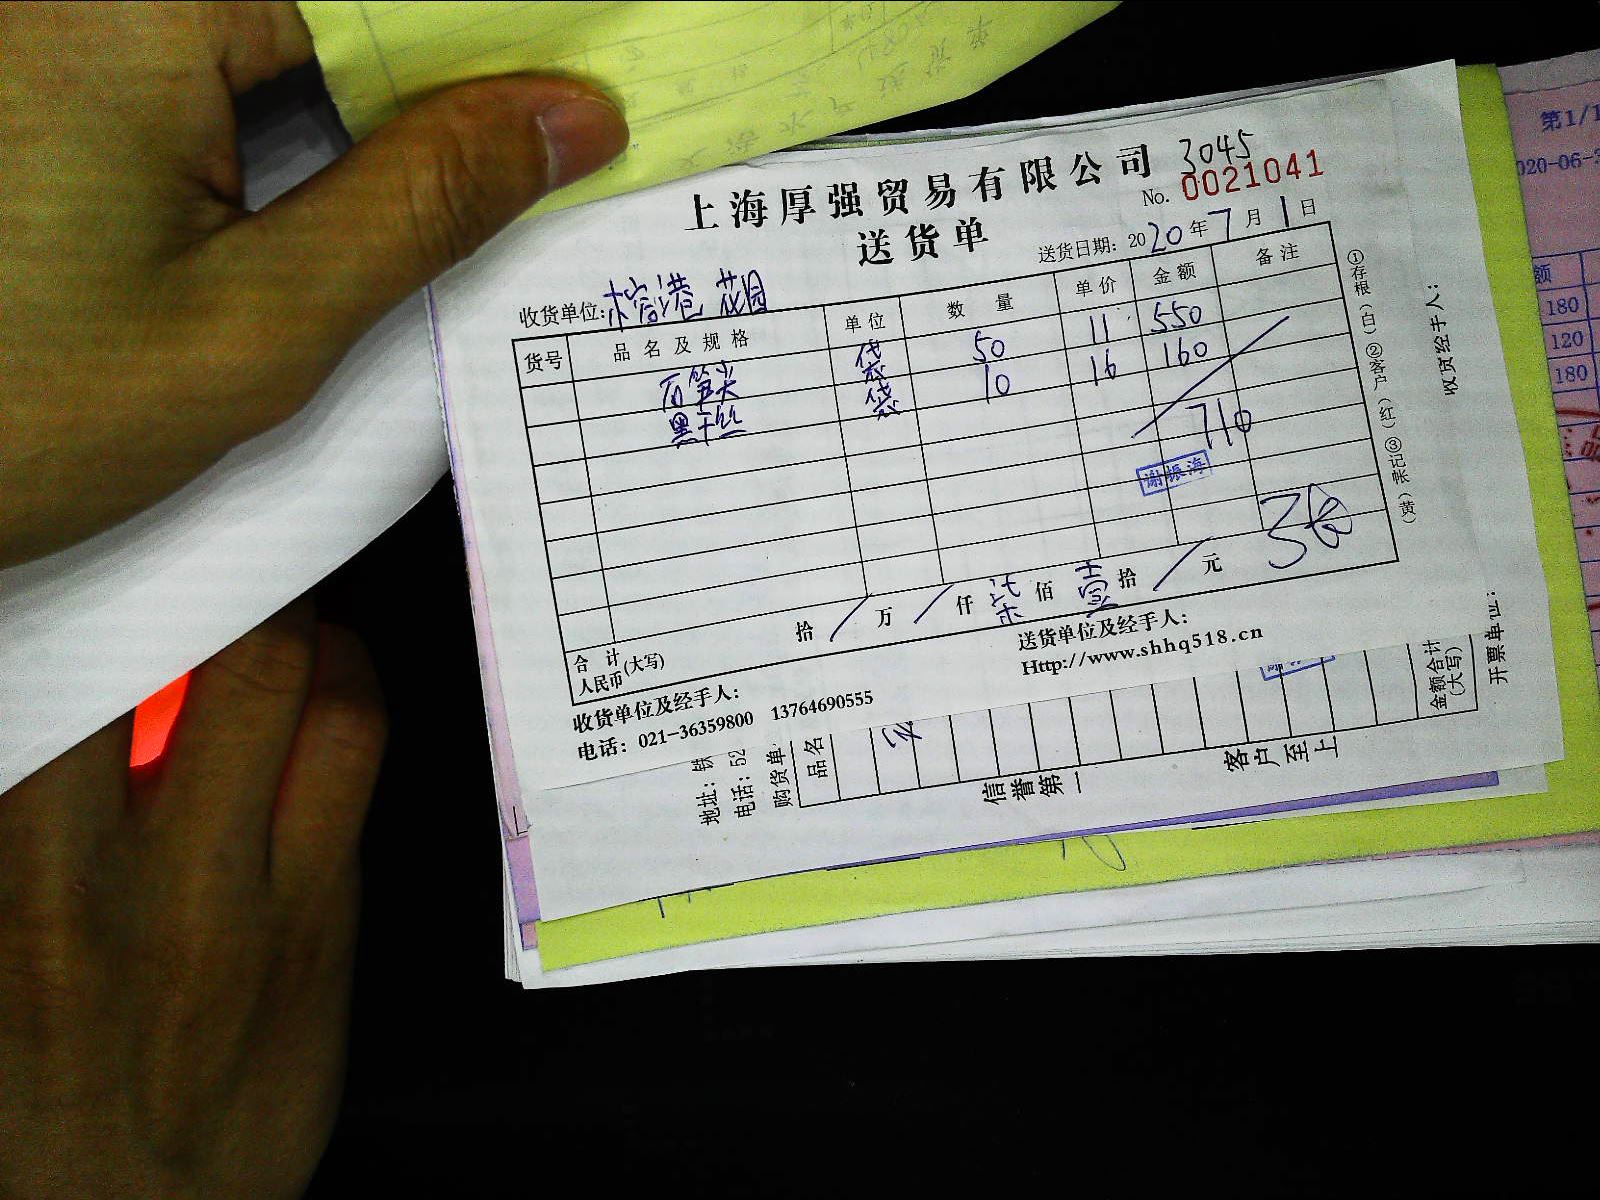 3045
上海厚强贸易有限公司
No. 0021041
送货单
送货日期: 2020年7月1日
收货单位: 榕港花园
货号 品名及规格 单位 数量 单价 金额 备注
石笋尖 袋 50 11 550
黑干丝 袋 10 16 160
710
谢振海
合计 人民币 (大写) 拾 / 万 / 仟 柒 佰 壹 拾 / 元
收货单位及经手人:
送货单位及经手人:
电话: 021-36359800 13764690555
Http://www.shhq518.cn
①存根(白)②客户(红)③记帐(黄)
收货经手人:
开票单位:
金额合计
(大写)
客户至上
信誉第一
地址: 铁
电话: 52
购货单
品名
第1/1
020-06-3
额
180
120
180